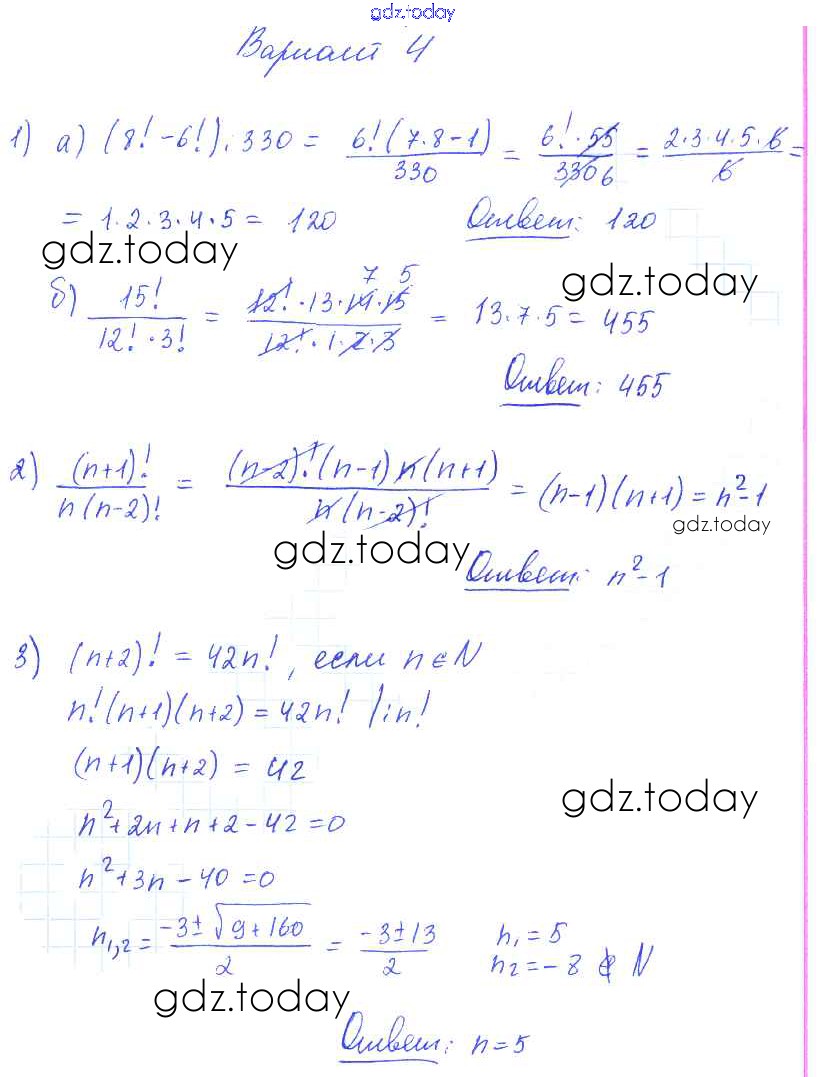 gdz.today
Вариант 4
1) а) (8! - 6!) : 330 = 6!(7·8-1)/330 = 6!·55/330 6 = 2·3·4·5·6/6 =
= 1·2·3·4·5 = 120 Ответ: 120
gdz.today gdz.today
б) 15!/(12!·3!) = (12!·13·14·15)/(12!·1·2·3) 7 5 = 13·7·5 = 455
Ответ: 455
2) (n+1)!/(n(n-2)!) = ((n-2)!(n-1)n(n+1))/(n(n-2)!) = (n-1)(n+1) = n²-1
gdz.today
gdz.today
Ответ: n²-1
3) (n+2)! = 42n!, если n∈N
n!(n+1)(n+2) = 42n! |:n!
(n+1)(n+2) = 42
gdz.today
n²+2n+n+2-42=0
n²+3n-40=0
n₁,₂ = (-3±√(9+160))/2 = (-3±13)/2 n₁=5
n₂=-8 ∉ N
gdz.today
Ответ: n=5